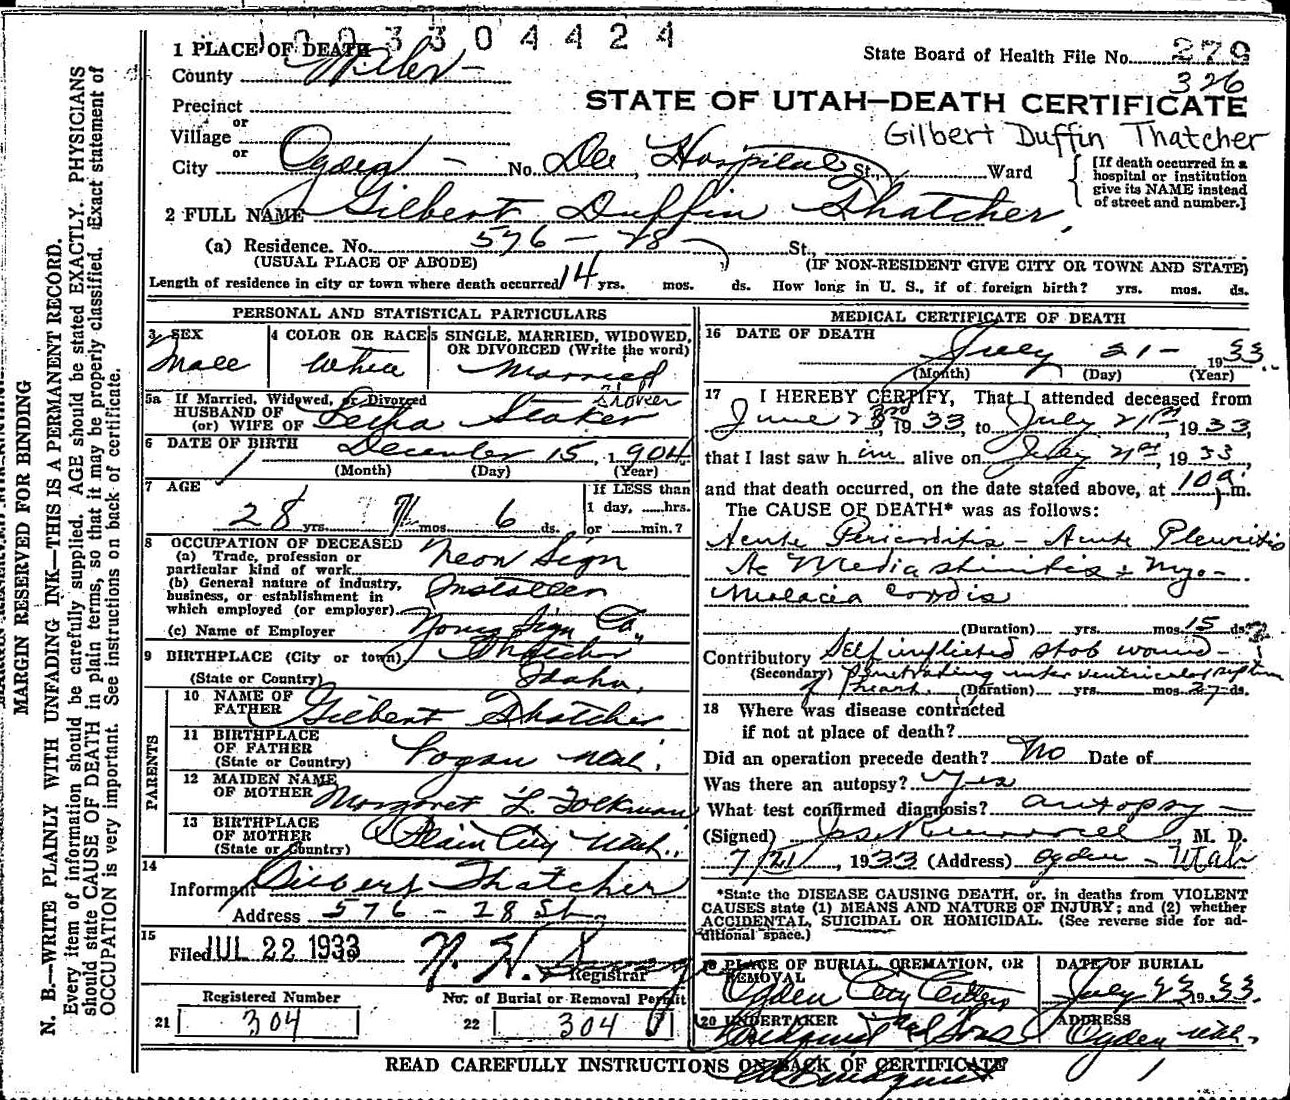 1003304424
State Board of Health File No. 279
326
1 PLACE OF DEATH
County Weber
STATE OF UTAH—DEATH CERTIFICATE
Precinct
or
Village
Gilbert Duffin Thatcher
or
City Ogden No. Dee Hospital St., Ward
[If death occurred in a hospital or institution give its NAME instead of street and number.]
2 FULL NAME Gilbert Duffin Thatcher,
(a) Residence. No. 576 - 28 St.,
(USUAL PLACE OF ABODE) (IF NON-RESIDENT GIVE CITY OR TOWN AND STATE)
Length of residence in city or town where death occurred 14 yrs. mos. ds. How long in U. S., if of foreign birth? yrs. mos. ds.
PERSONAL AND STATISTICAL PARTICULARS
3 SEX Male
4 COLOR OR RACE White
5 SINGLE, MARRIED, WIDOWED, OR DIVORCED (Write the word) Married
5a If Married, Widowed, or Divorced
HUSBAND OF
(or) WIFE OF Letha Staker
6 DATE OF BIRTH December 15, 1904
(Month) (Day) (Year)
7 AGE
28 yrs. 7 mos. 6 ds.
If LESS than 1 day, ......hrs. or ......min.?
8 OCCUPATION OF DECEASED
(a) Trade, profession or particular kind of work Neon Sign
(b) General nature of industry, business, or establishment in which employed (or employer) Installer
(c) Name of Employer Sign Co,
9 BIRTHPLACE (City or town) Thatcher
(State or Country) Idaho,
PARENTS
10 NAME OF FATHER Gilbert Thatcher
11 BIRTHPLACE OF FATHER (State or Country) Logan Utah,
12 MAIDEN NAME OF MOTHER Margaret L. Folkman
13 BIRTHPLACE OF MOTHER (State or Country) Plain City Utah.
14
Informant Gilbert Thatcher
Address 576 - 28 St.
15
Filed JUL 22 1933 Registrar
Registered Number
No. of Burial or Removal Permit
21 304
22 304
MEDICAL CERTIFICATE OF DEATH
16 DATE OF DEATH
July 21 - 1933
(Month) (Day) (Year)
17 I HEREBY CERTIFY, That I attended deceased from
June 23rd, 1933, to July 21st, 1933,
that I last saw him alive on July 21st, 1933,
and that death occurred, on the date stated above, at 10 a. m.
The CAUSE OF DEATH* was as follows:
Acute Pericarditis - Acute Pleuritis
Ac Mediastinitis + Myo-
Malacia Cordis
(Duration) yrs. mos. 15 ds.
Contributory Self inflicted stab wound -
(Secondary) penetrating inter ventricular septum
of heart. (Duration) yrs. mos. 27 ds.
18 Where was disease contracted
if not at place of death?
Did an operation precede death? No Date of
Was there an autopsy? Yes
What test confirmed diagnosis? autopsy
(Signed) M. D.
7/21, 1933 (Address) Ogden - Utah
*State the DISEASE CAUSING DEATH, or, in deaths from VIOLENT
CAUSES state (1) MEANS AND NATURE OF INJURY; and (2) whether
ACCIDENTAL, SUICIDAL OR HOMICIDAL. (See reverse side for ad-
ditional space.)
19 PLACE OF BURIAL CREMATION, OR REMOVAL
Ogden City
DATE OF BURIAL
July 23 1933.
20 UNDERTAKER
Lindquist and Sons
ADDRESS
Ogden Utah.
READ CAREFULLY INSTRUCTIONS ON BACK OF CERTIFICATE
MARGIN RESERVED FOR BINDING
N. B.—WRITE PLAINLY WITH UNFADING INK—THIS IS A PERMANENT RECORD.
Every item of information should be carefully supplied. AGE should be stated EXACTLY. PHYSICIANS
should state CAUSE OF DEATH in plain terms, so that it may be properly classified. Exact statement of
OCCUPATION is very important. See instructions on back of certificate.